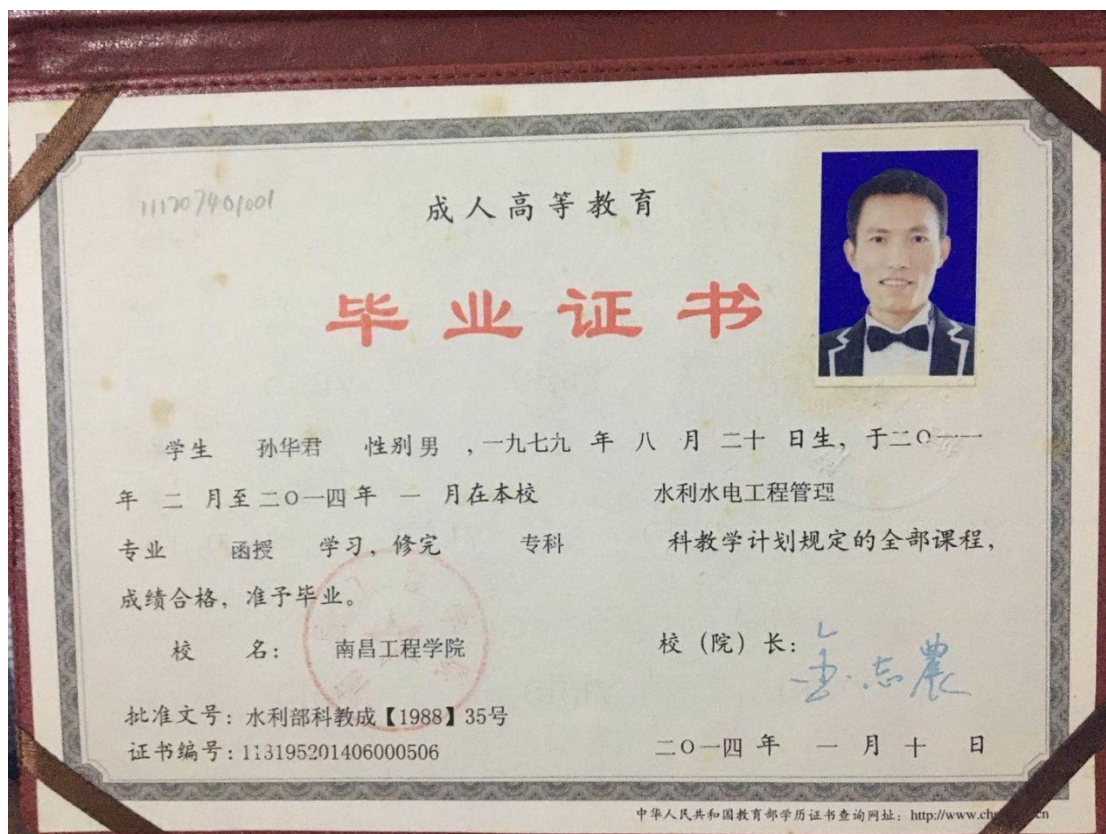 111207401001
成人高等教育
毕业证书
学生 孙华君 性别 男 ，一九七九 年 八 月 二十 日生，于二〇一一
年 二 月至二〇一四年 一 月在本校 水利水电工程管理
专业 函授 学习，修完 专科 科教学计划规定的全部课程，
成绩合格，准予毕业。
校 名： 南昌工程学院 校（院）长：金志農
批准文号：水利部科教成【1988】35号
证书编号：113195201406000506 二〇一四 年 一 月 十 日
中华人民共和国教育部学历证书查询网址：http://www.ch